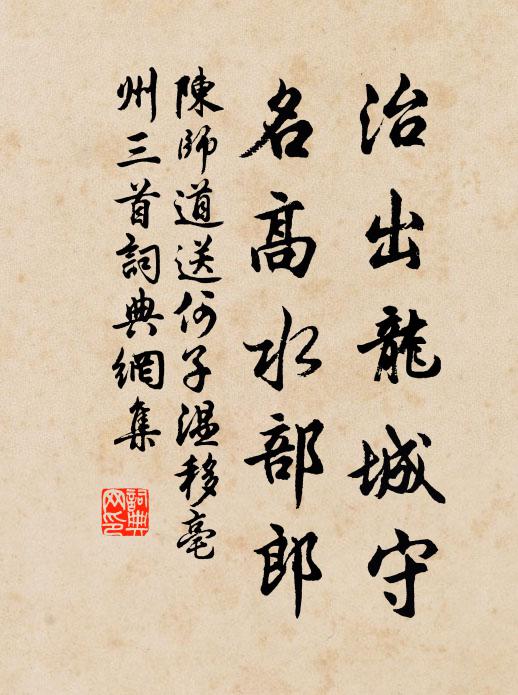 治出龍城守
名高水部郎
陳師道送何子温移亳
州三首詞典網集
詞典網印